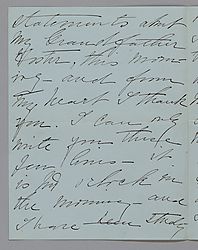 statements about
my Grandfather
Foster, this morn
ing - and from
my heart I thank
you. I can only
write you these
few lines - it
is o'clock in
the morning - and
I have